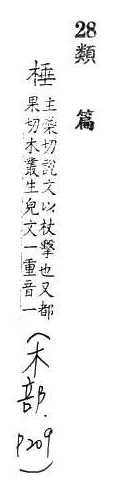 28
類篇
棰
主橤切説文以杖擊也又都
果切木叢生皃文一重音一
(木部.
P209)